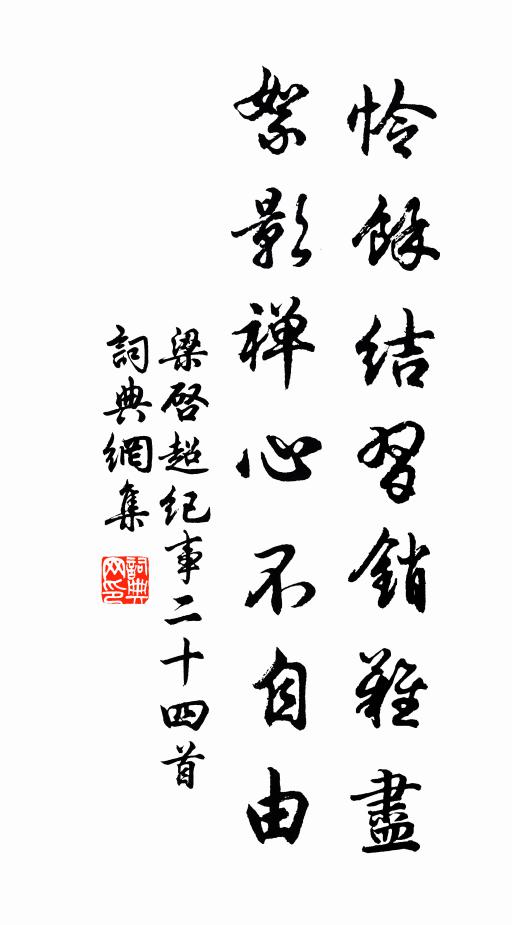 怜餘結習銷難盡
絮影禅心不自由
梁啓超纪事二十四首
詞典網集
詞典网印